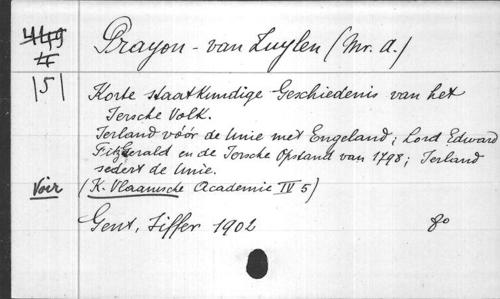 4449
IV
|5|
Prayon - van Zuylen (Mr. A.)
Korte staatkundige Geschiedenis van het
Iersche Volk.
Ierland vóór de Unie met Engeland; Lord Edward
FitzGerald en de Iersche Opstand van 1798; Ierland
sedert de Unie.
Voir
(K. Vlaamsche Academie IV 5)
Gent, Siffer 1902
8o